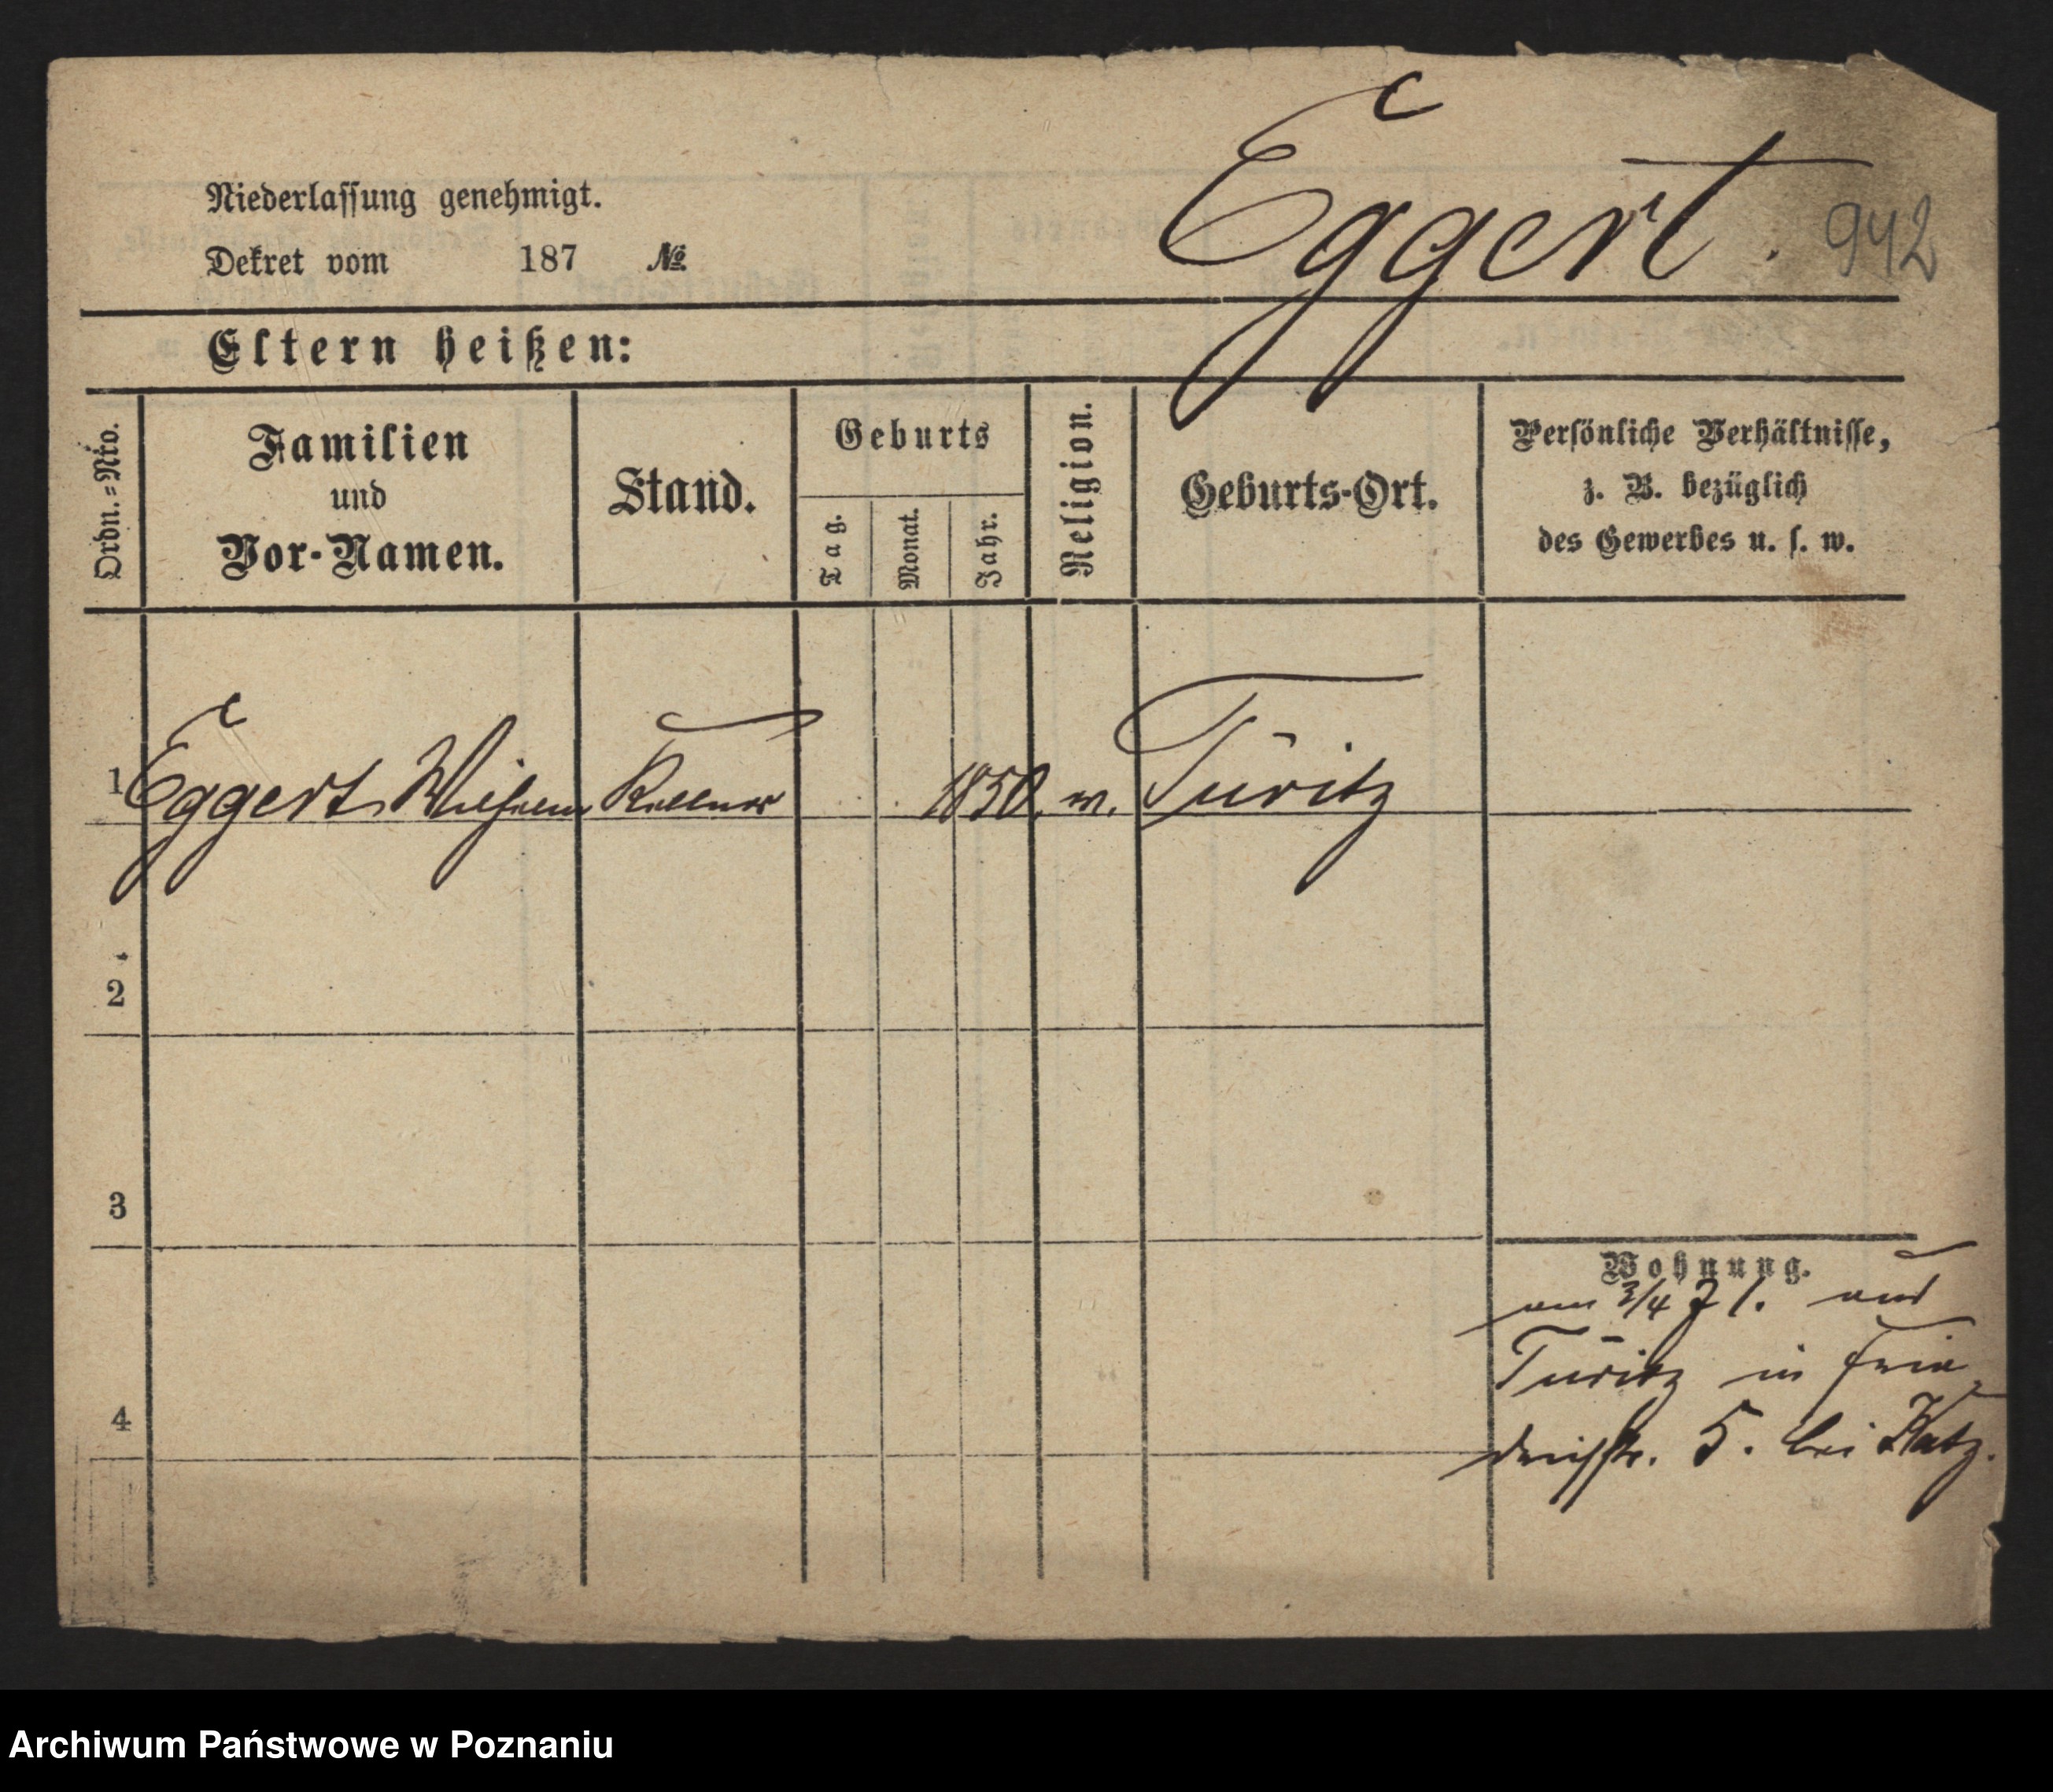 Eggert. 942
Niederlassung genehmigt.
Dekret vom 187 №
Eltern heißen:
Ordn.=Nro.
Familien
und
Vor-Namen.
Stand.
Geburts
Tag.
Monat.
Jahr.
Religion.
Geburts-Ort.
Persönliche Verhältnisse,
z. B. bezüglich
des Gewerbes u. s. w.
1 Eggert Wilhelm Kellner 1850. Türitz
2
3
4
Wohnung.
am 3/4 71. aus
Türitz in Frie
drichstr. 5. bei Katz.
Archiwum Państwowe w Poznaniu